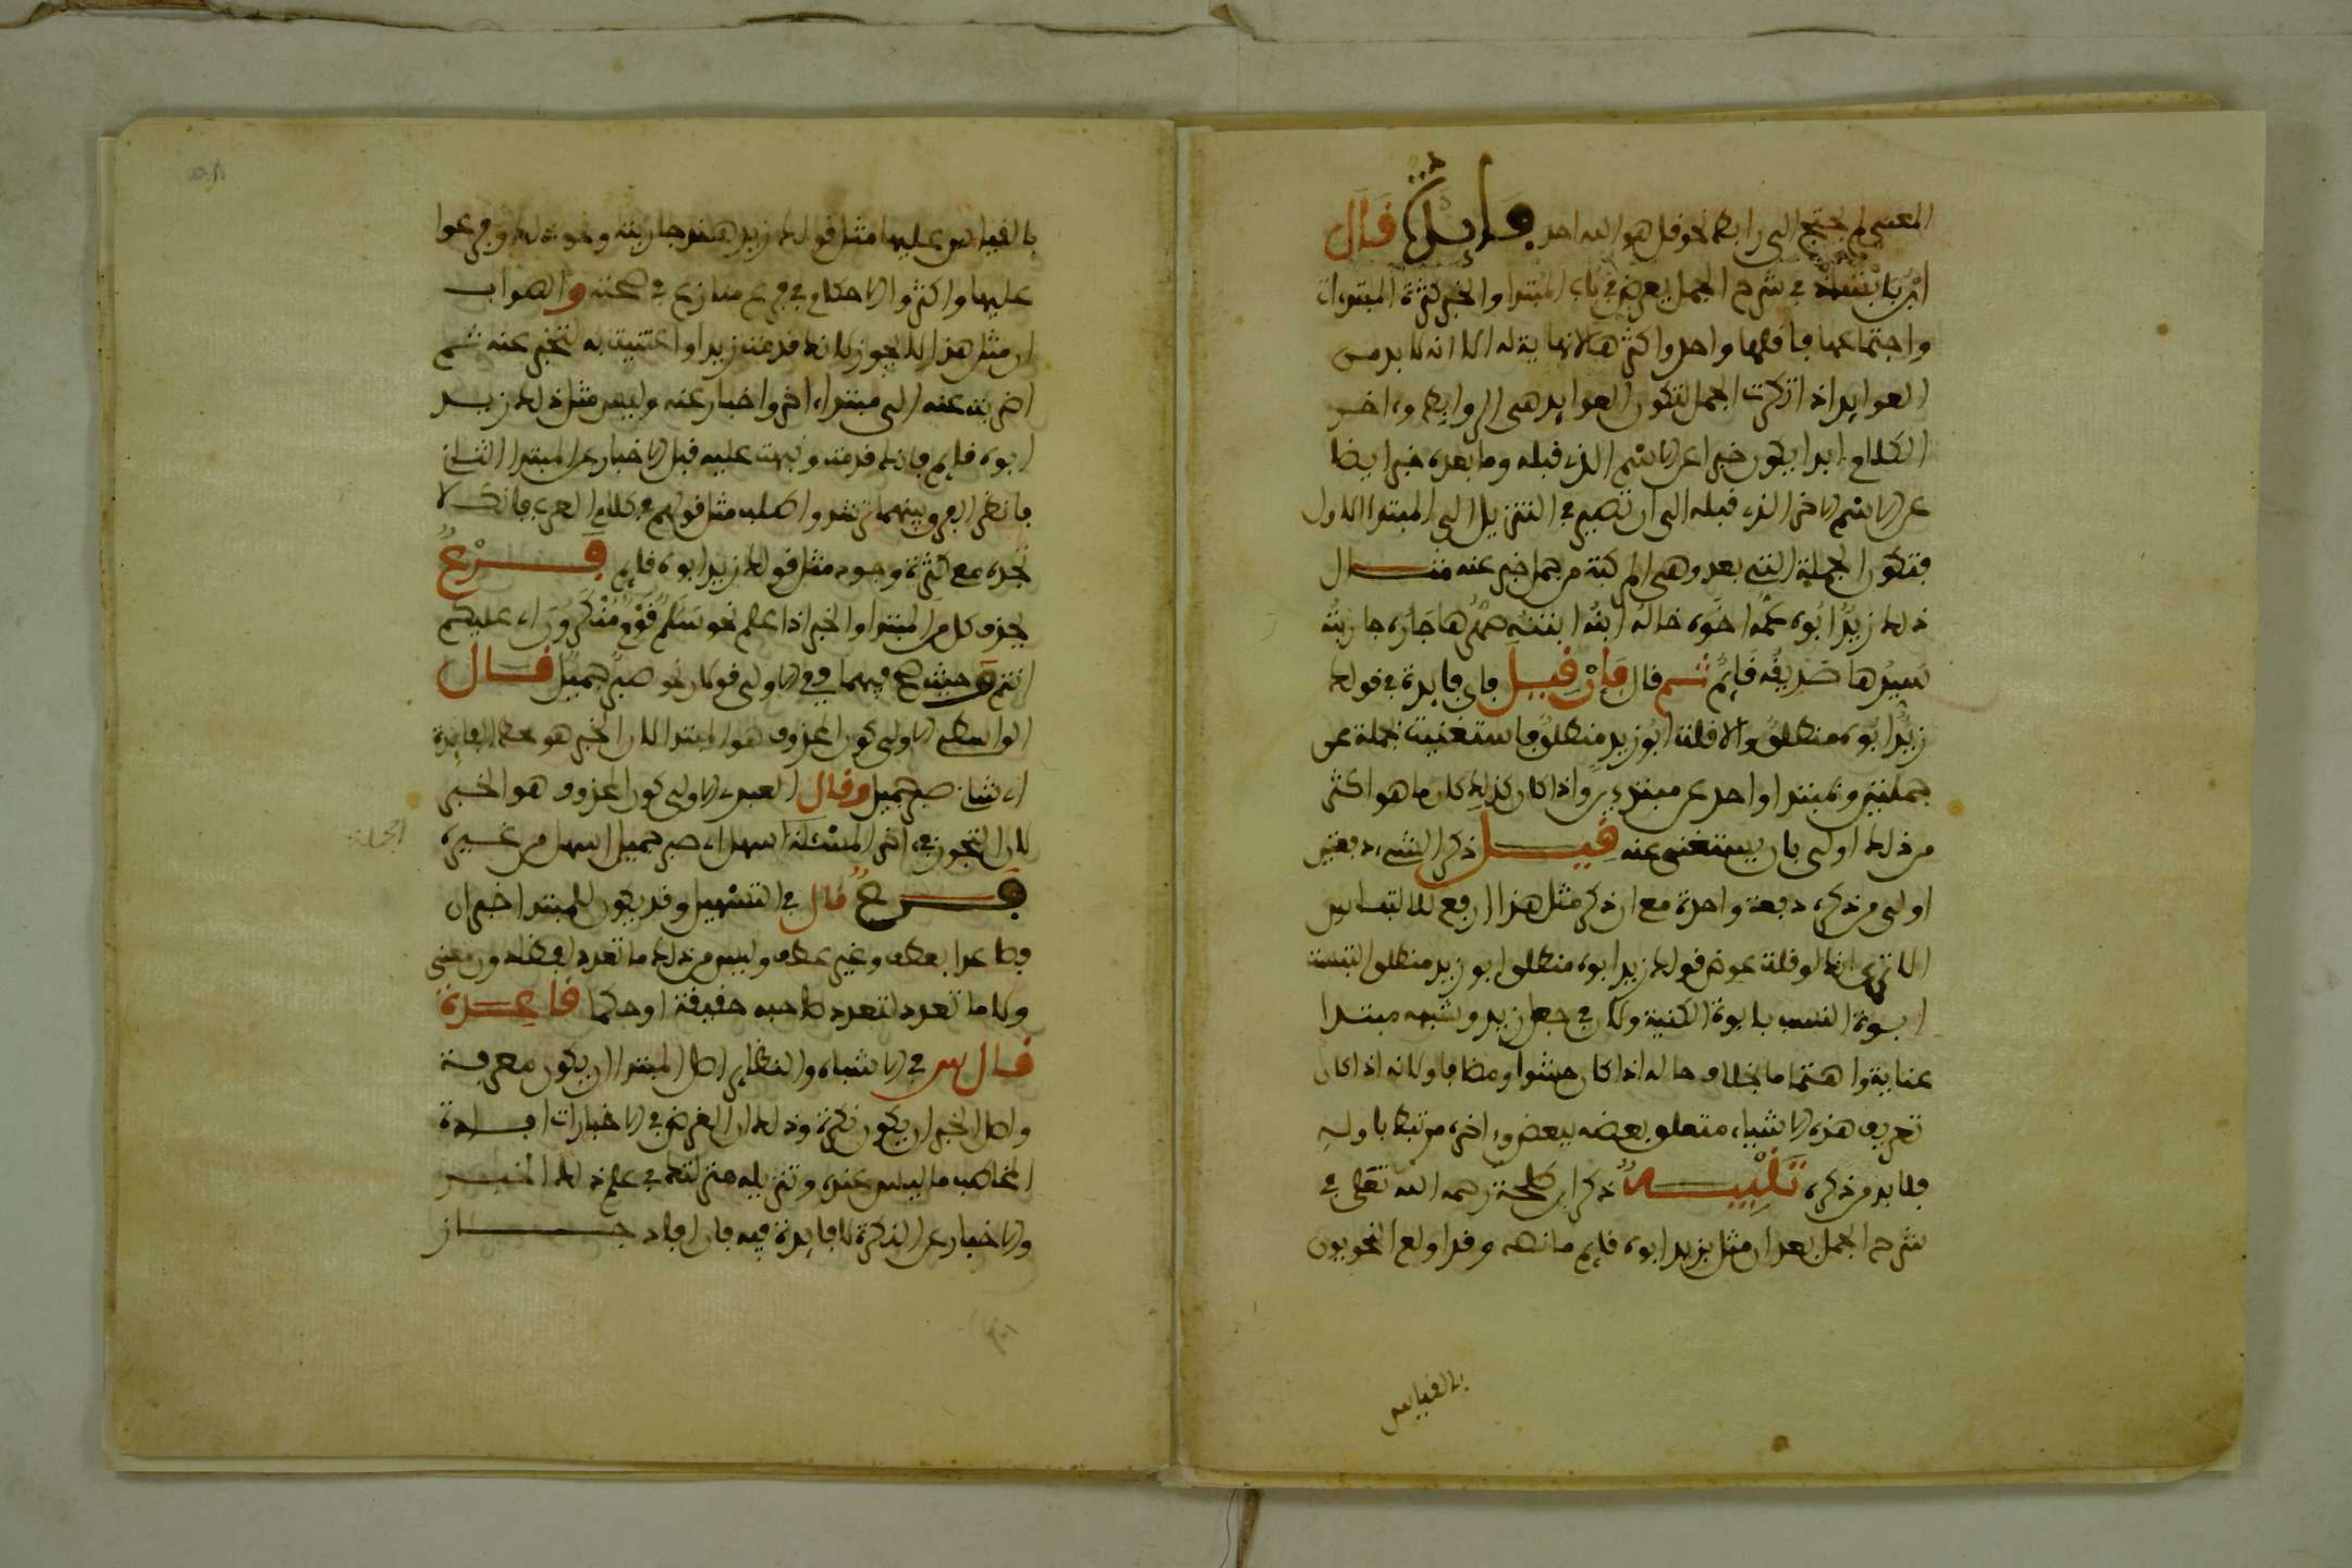 المعنى لم يحتج الى رابط نحو قل هو الله احد فايدة قال
ابن بابشاذ في شرح الجمل يعرض في باب المبتدا والخبر كثرة المبتدات
واجتماعها فاقلها واحد واكثرها لا نهاية له الا انه لا بد من
العوايد اذا تركبت الجمل لتكون العوايد هي الروابط واخر
الكلام ابدا يكون خبرا عن الاسم الذي قبله وما بعده خبر ايضا
عن الاسم الاخر الذي قبله الى ان تصير في التنزيل الى المبتدا الاول
فتكون الجملة التي بعد وهي المركبة من جمل خبر عنه مثال
ذلك زيد ابوه عمه اخوه خاله ابنه ابنته صهرها جاره جاريته
سيدها صديقه قايم ثم قال فان قيل فاي فايدة في قولك
زيد ابوه منطلق والا قلت ابو زيد منطلق فاستغنيت بجملة عن
جملتين وبمبتدا واحد عن مبتدءين واذا كان كذلك كان ما هو اكثر
من ذلك اولى بان يستغنى عنه قيل ذكر الشيء دفعتين
اولى من ذكره دفعة واحدة مع ان ذكر مثل هذا ارفع للالتباس
الا ترى انك لو قلت عوض قولك زيد ابوه منطلق ابو زيد منطلق التبست
ابوة النسب بابوة الكنية ولان في جعل زيد وشبهه مبتدا
عناية واهتماما بخلاف حاله اذا كان حشوا ومضافا ولانه اذا كان
تعريف هذه الاشياء متعلق بعضه ببعض واخره مرتبط باوله
فلا بد من ذكره تنبيه ذكر ابن طلحة رحمه الله تعلى في
شرح الجمل بعد ان مثل بزيد ابوه قايم ما نصه وقد اولع النحويون
بالقياس
بالقياس على هذا مثل قولك زيد هند جاريته ونحو ذلك وفرعوا
عليها واكثروا الاحكام في فرع منازع في صحته والصواب
ان مثل هذا لا يجوز لانك قدمت زيدا واعتنيت به لتخبر عنه ثم
اضربت عنه الى مبتدا اخر واخبار عنه وليس مثل ذلك زيد
ابوه قايم فانك قدمت ونبهت عليه قبل الاخبار عن المبتدا الثاني
فانظر الفرق بينهما ترشد واطلب مثل قولهم في كلام العرب فانك لا
تجده مع كثرة وجود مثل قولك زيد ابوه قايم فرع
يحذف كل من المبتدا والخبر اذا علم نحو سلم قوم منكرون اي عليكم
انتم وحيث صح فيهما ففي الاولى قولان نحو صبر جميل قال
الواسطي الاولى كون المحذوف هو المبتدا لان الخبر هو محط الفايدة
اي شاني صبر جميل وقال العبدي الاولى كون المحذوف هو الخبر
لان التجوز في اخر المسئلة اسهل اي صبر جميل اسهل من غيره
الجملة
فرع قال في التسهيل وقد يكون للمبتدا خبران
فصاعدا بعطف وغير عطف وليس من ذلك ما تعدد لفظا دون معنى
ولا ما تعدد لتعدد صاحبه حقيقة او حكما قاعدة
قال س في الاشباه والنظاير اصل المبتدا ان يكون معرفة
واصل الخبر ان يكون نكرة وذلك ان الغرض في الاخبارات افادة
المخاطب ما ليس عنده وتنزيله منزلتك في علم ذلك الخبر
والاخبار عن النكرة لا فايدة فيه فان افاد جاز